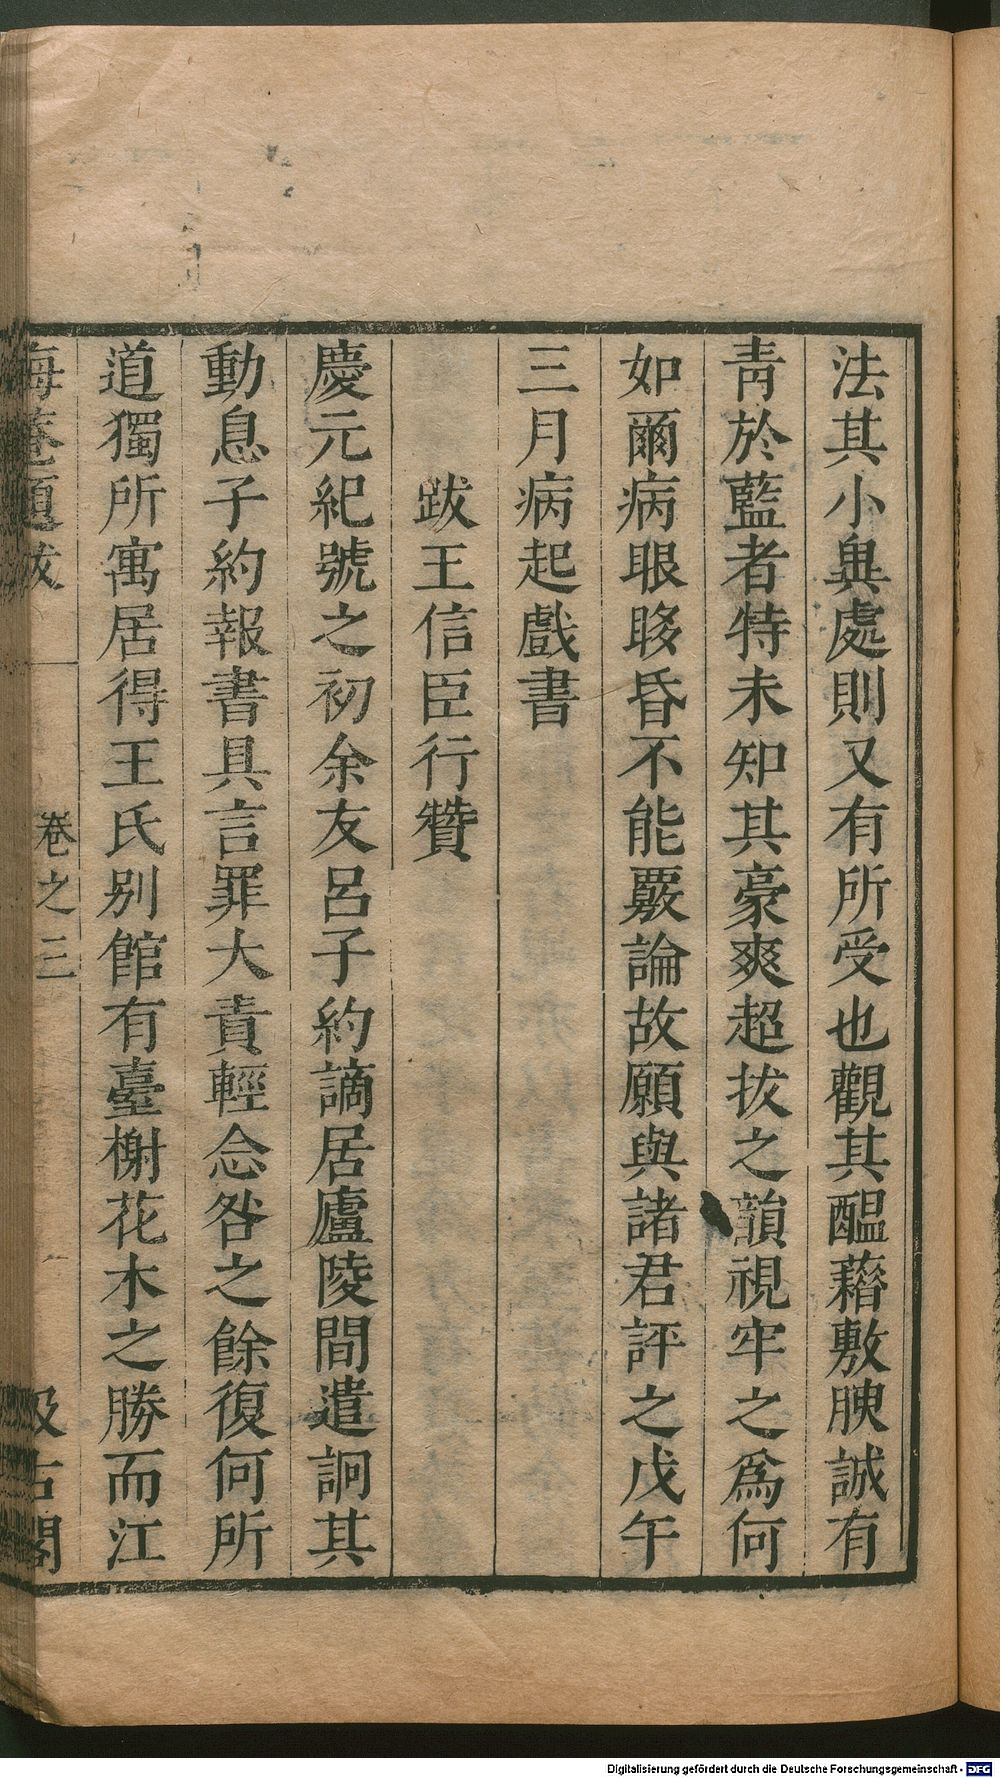 法其小異處則又有所受也觀其醞藉敷腴誠有
靑於藍者特未知其豪爽超拔之韻視牢之爲何
如爾病眼眵昏不能覈論故願與諸君評之戊午
三月病起戲書
跋王信臣行贊
慶元紀號之初余友呂子約謫居廬陵間遣詗其
動息子約報書具言罪大責輕念咎之餘復何所
道獨所寓居得王氏別館有臺榭花木之勝而江
晦菴題跋 卷之三 汲古閣
Digitalisierung gefördert durch die Deutsche Forschungsgemeinschaft - DFG